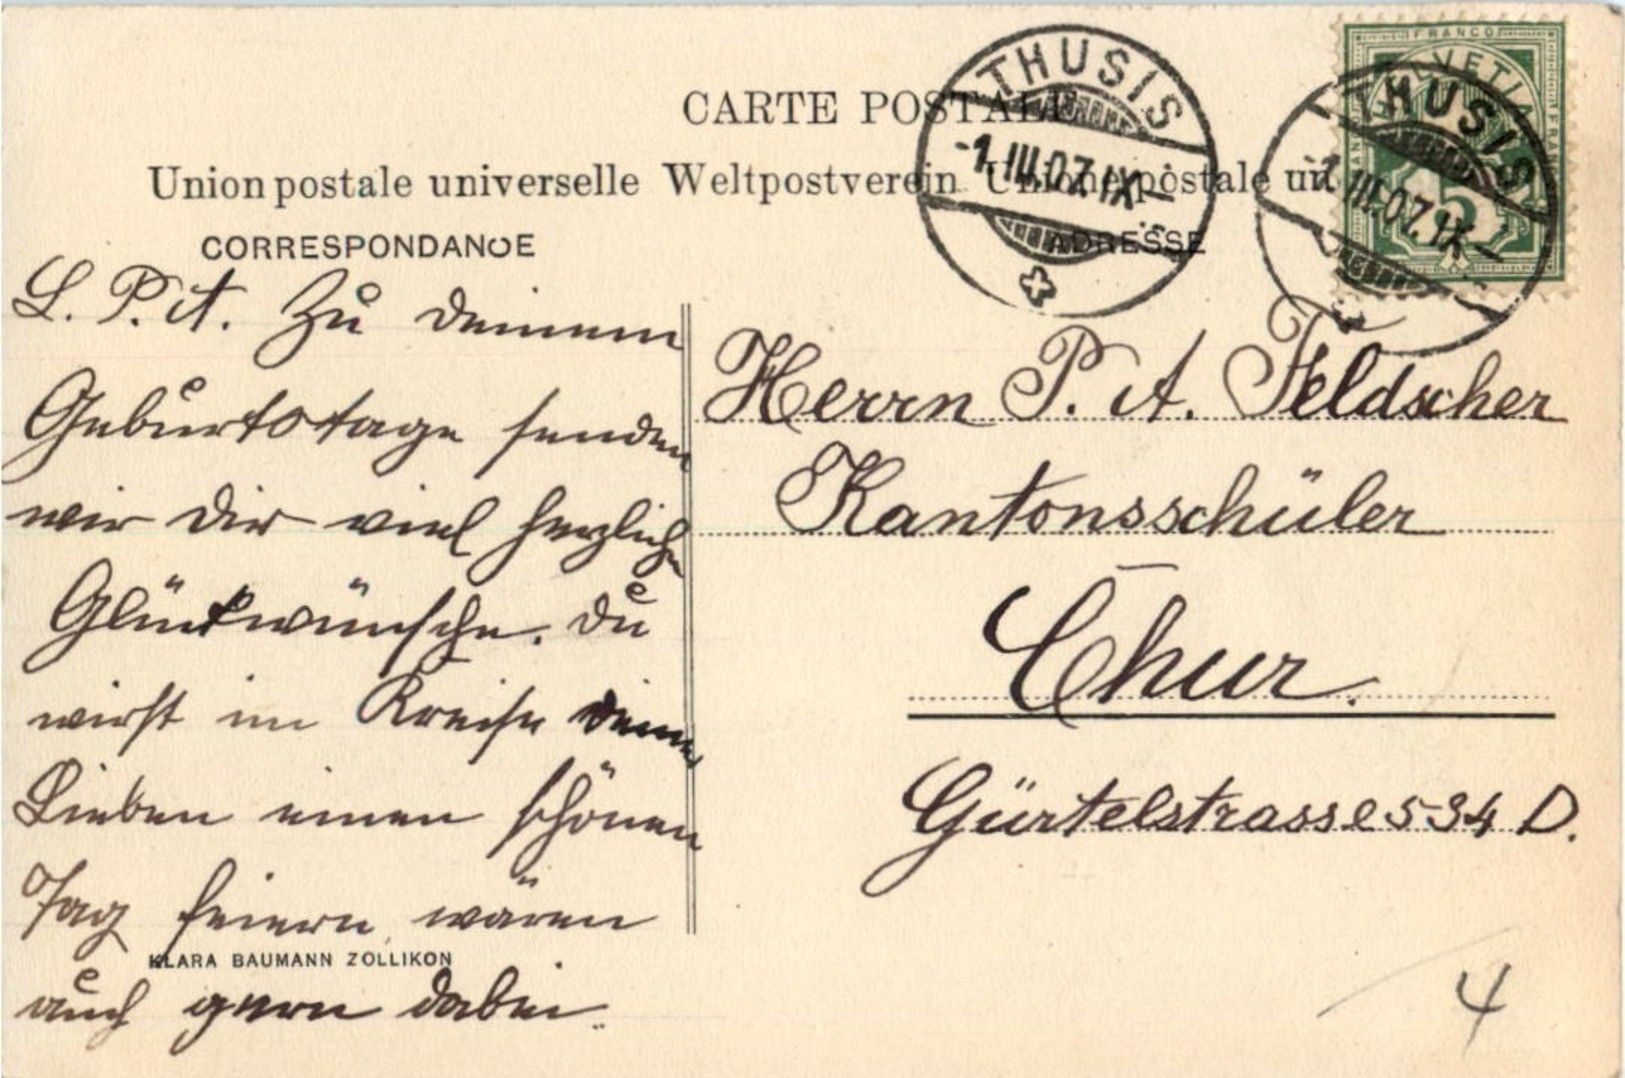 CARTE POSTALE
Union postale universelle Weltpostverein Unione postale un
CORRESPONDANCE
ADRESSE
THUSIS
-1.III.07.IX-
THUSIS
-1.III.07.IX-
FRANCO
HELVETIA
FRANCO
5
L. P. A. Zu deinem
Geburtstage senden
wir dir viel herzliche
Glückwünsche. Du
wirst im Kreise deiner
Lieben einen schönen
Tag feiern, wären
auch gern dabei.
KLARA BAUMANN ZOLLIKON
Herrn P. A. Feldscher
Kantonsschüler
Chur.
Gürtelstrasse 534 D.
4